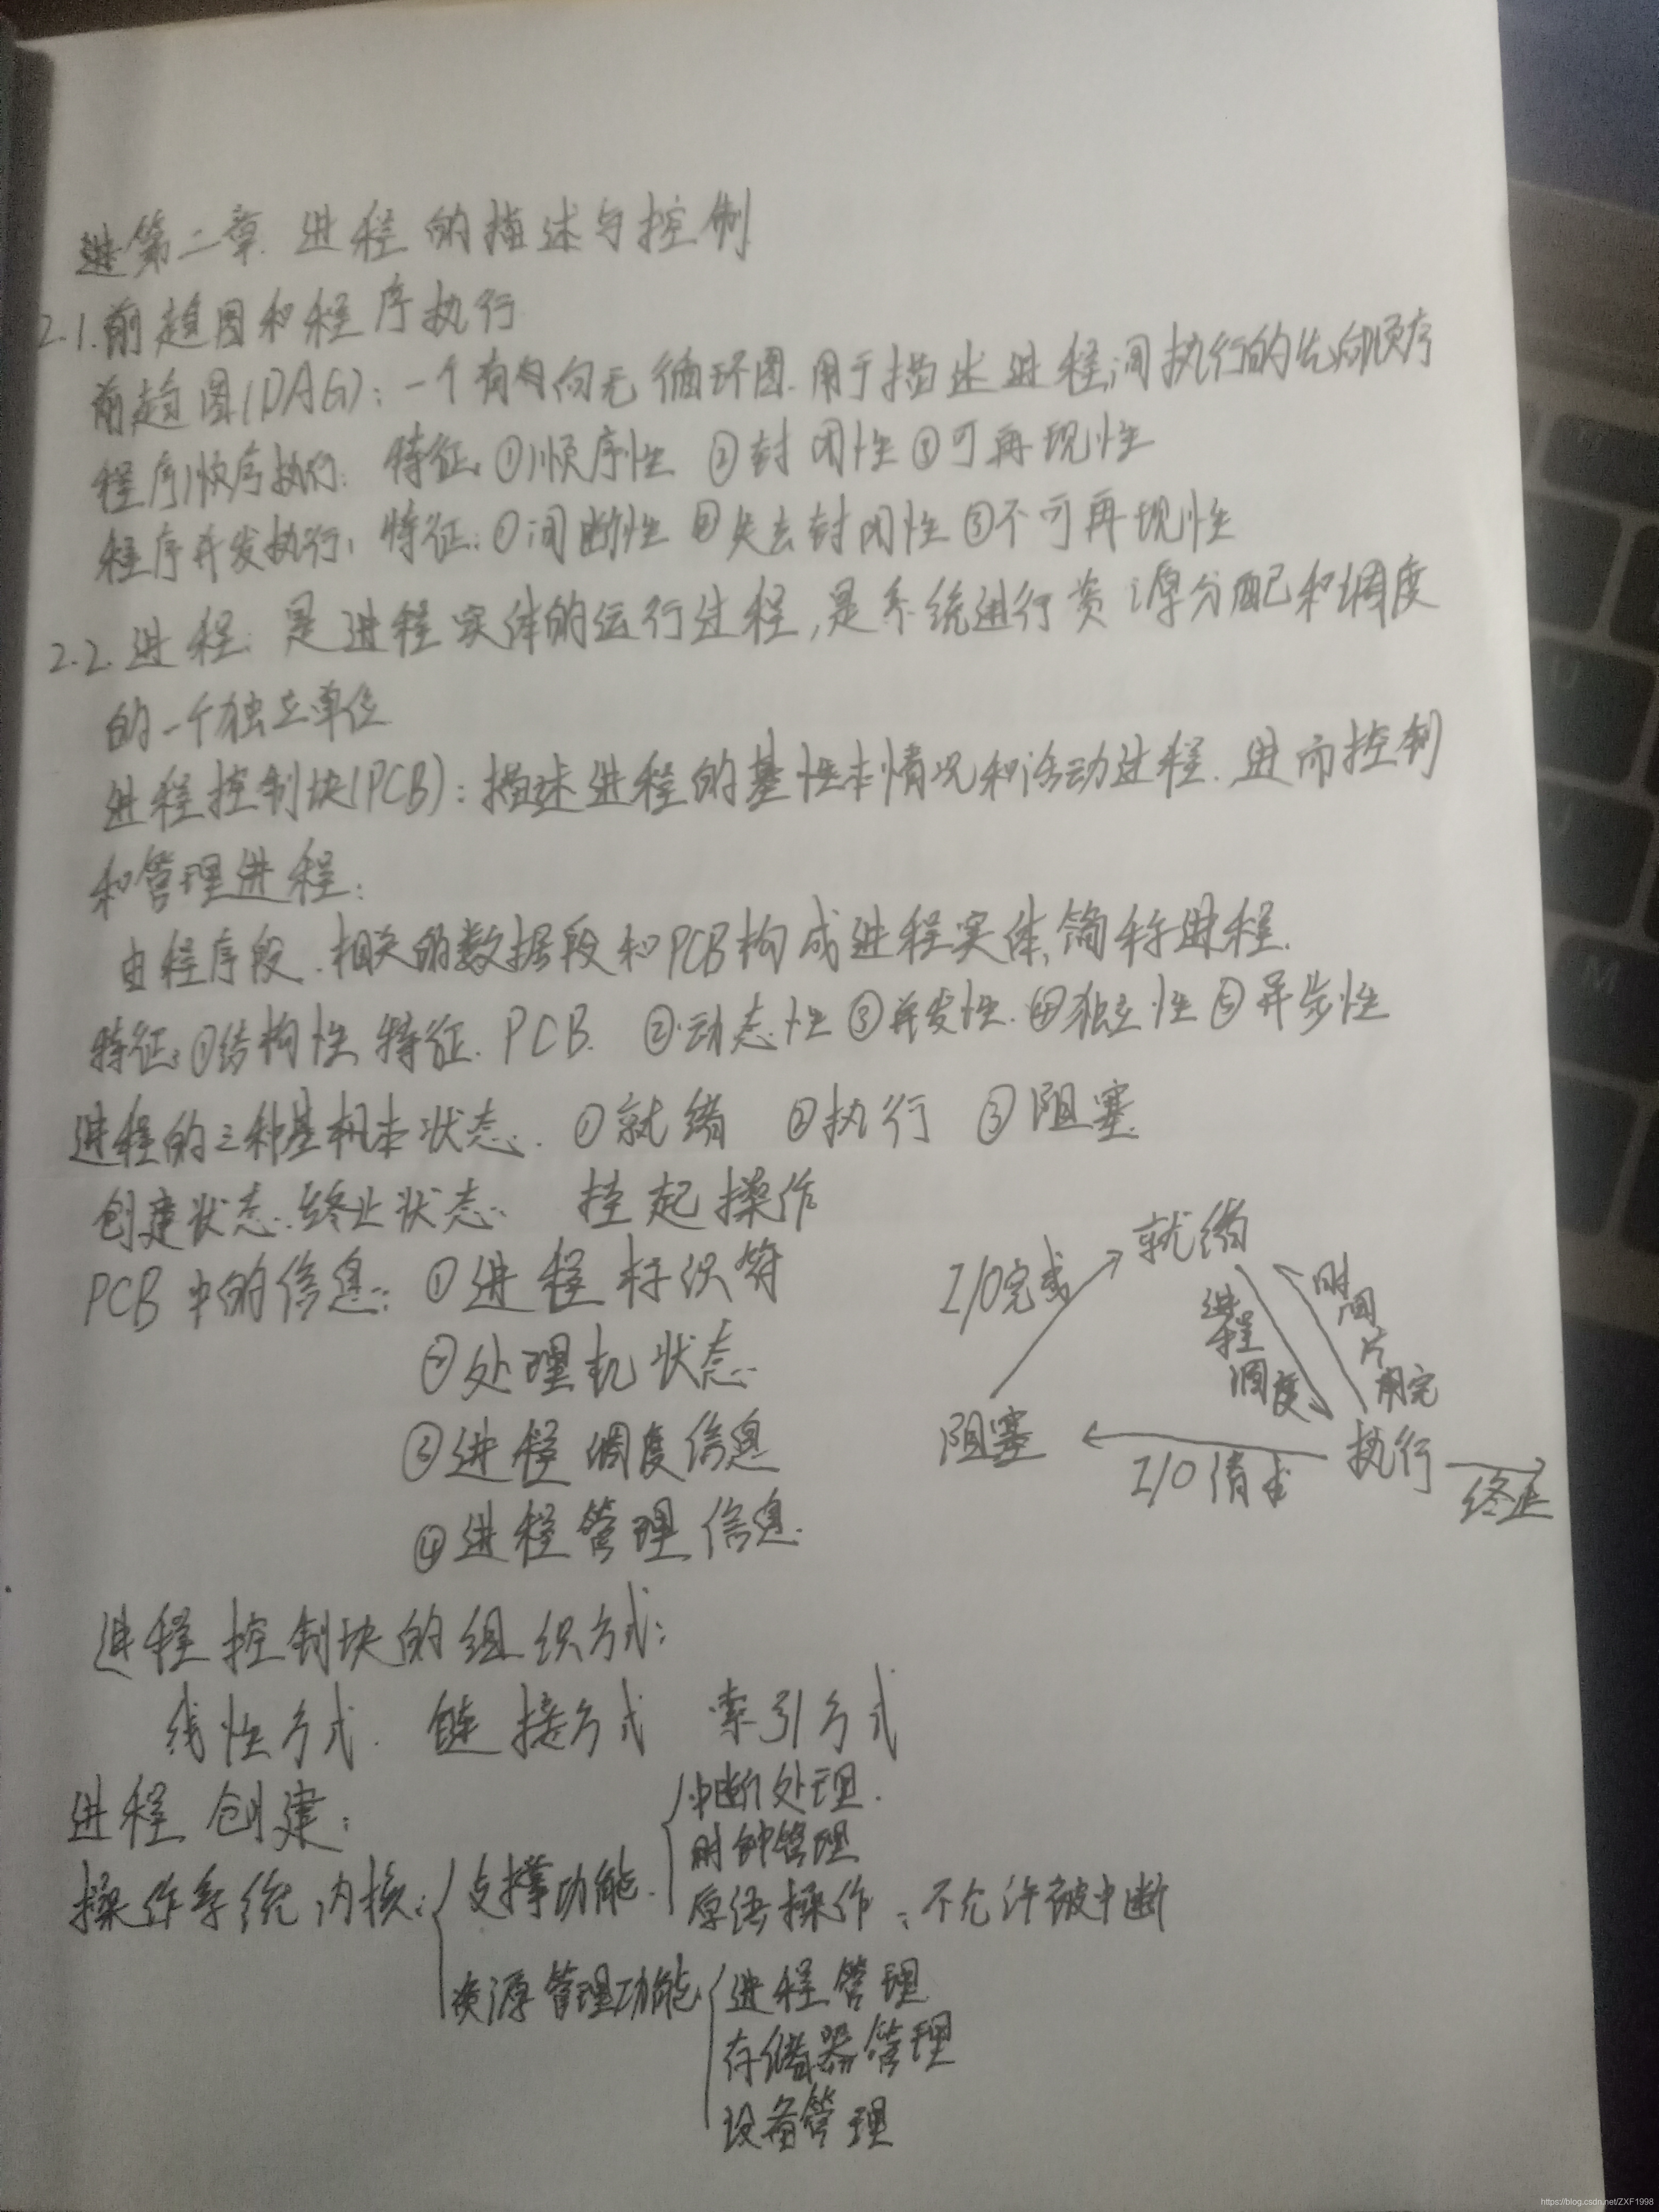 第二章. 进程的描述与控制
2.1.前趋图和程序执行
前趋图(DAG):一个有向无循环图.用于描述进程间执行的先后顺序
程序顺序执行: 特征:①顺序性 ②封闭性 ③可再现性
程序并发执行: 特征:①间断性 ②失去封闭性 ③不可再现性
2.2.进程:是进程实体的运行过程,是系统进行资源分配和调度
的一个独立单位
进程控制块(PCB):描述进程的基本情况和活动过程.进而控制
和管理进程:
由程序段.相关的数据段和PCB构成进程实体,简称进程.
特征:①结构性特征.PCB. ②动态性 ③并发性.④独立性 ⑤异步性
进程的三种基本状态. ①就绪 ②执行 ③阻塞
创建状态.终止状态. 挂起操作
PCB中的信息: ①进程标识符
②处理机状态
③进程调度信息
④进程管理信息.
就绪
I/O完成
进程调度
时间片用完
阻塞
I/O请求
执行
终止
进程控制块的组织方式:
线性方式. 链接方式 索引方式
进程创建:
操作系统内核: 支撑功能. 中断处理.
时钟管理
原语操作:不允许被中断
资源管理功能 进程管理
存储器管理
设备管理
https://blog.csdn.net/ZXF1998